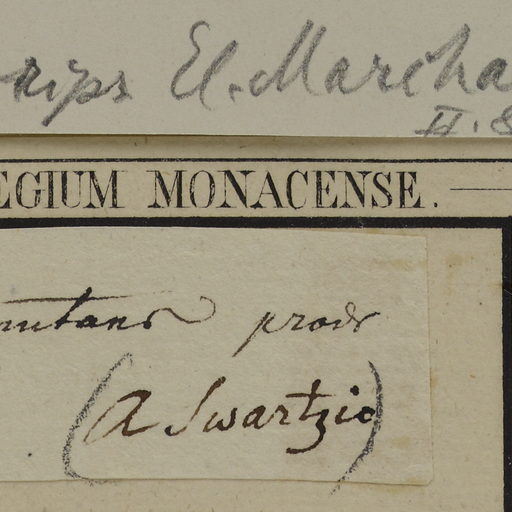 El. Marcha
II. 8
EGIUM MONACENSE.
nutans prodr
(A Swartzio)